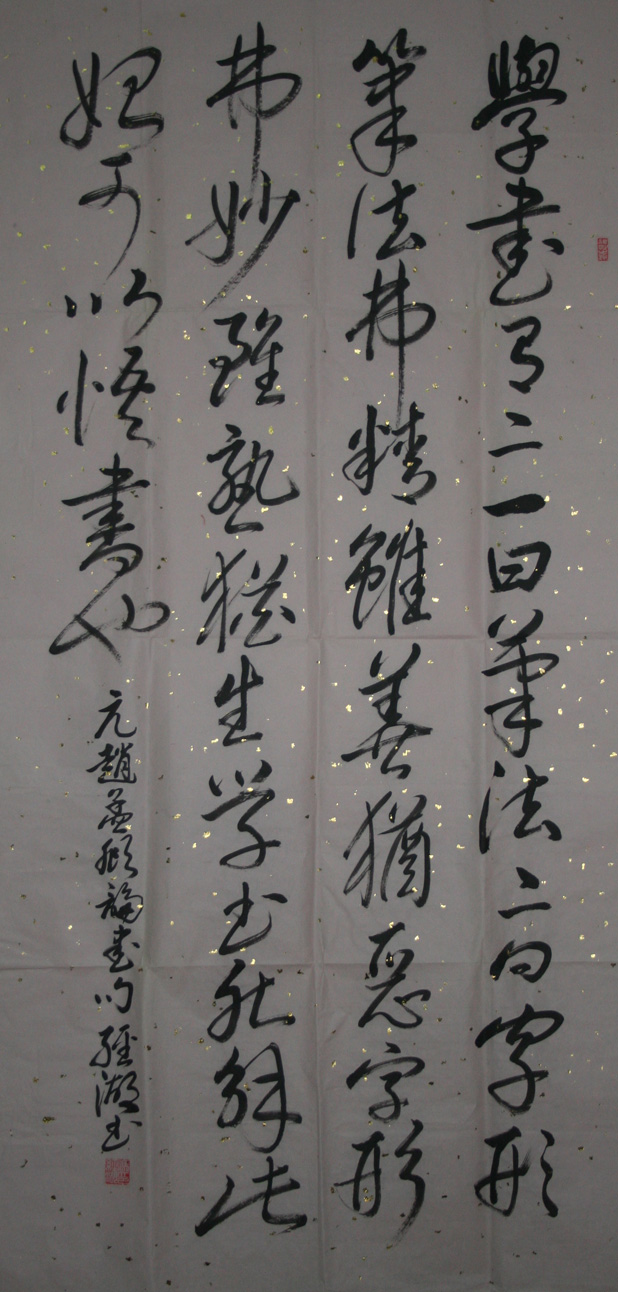 學書有二一曰筆法二曰字形
筆法弗精雖善猶惡字形
弗妙雖熟猶生学书能解此
始可以悟書也
元趙孟頫論書句 經湖书